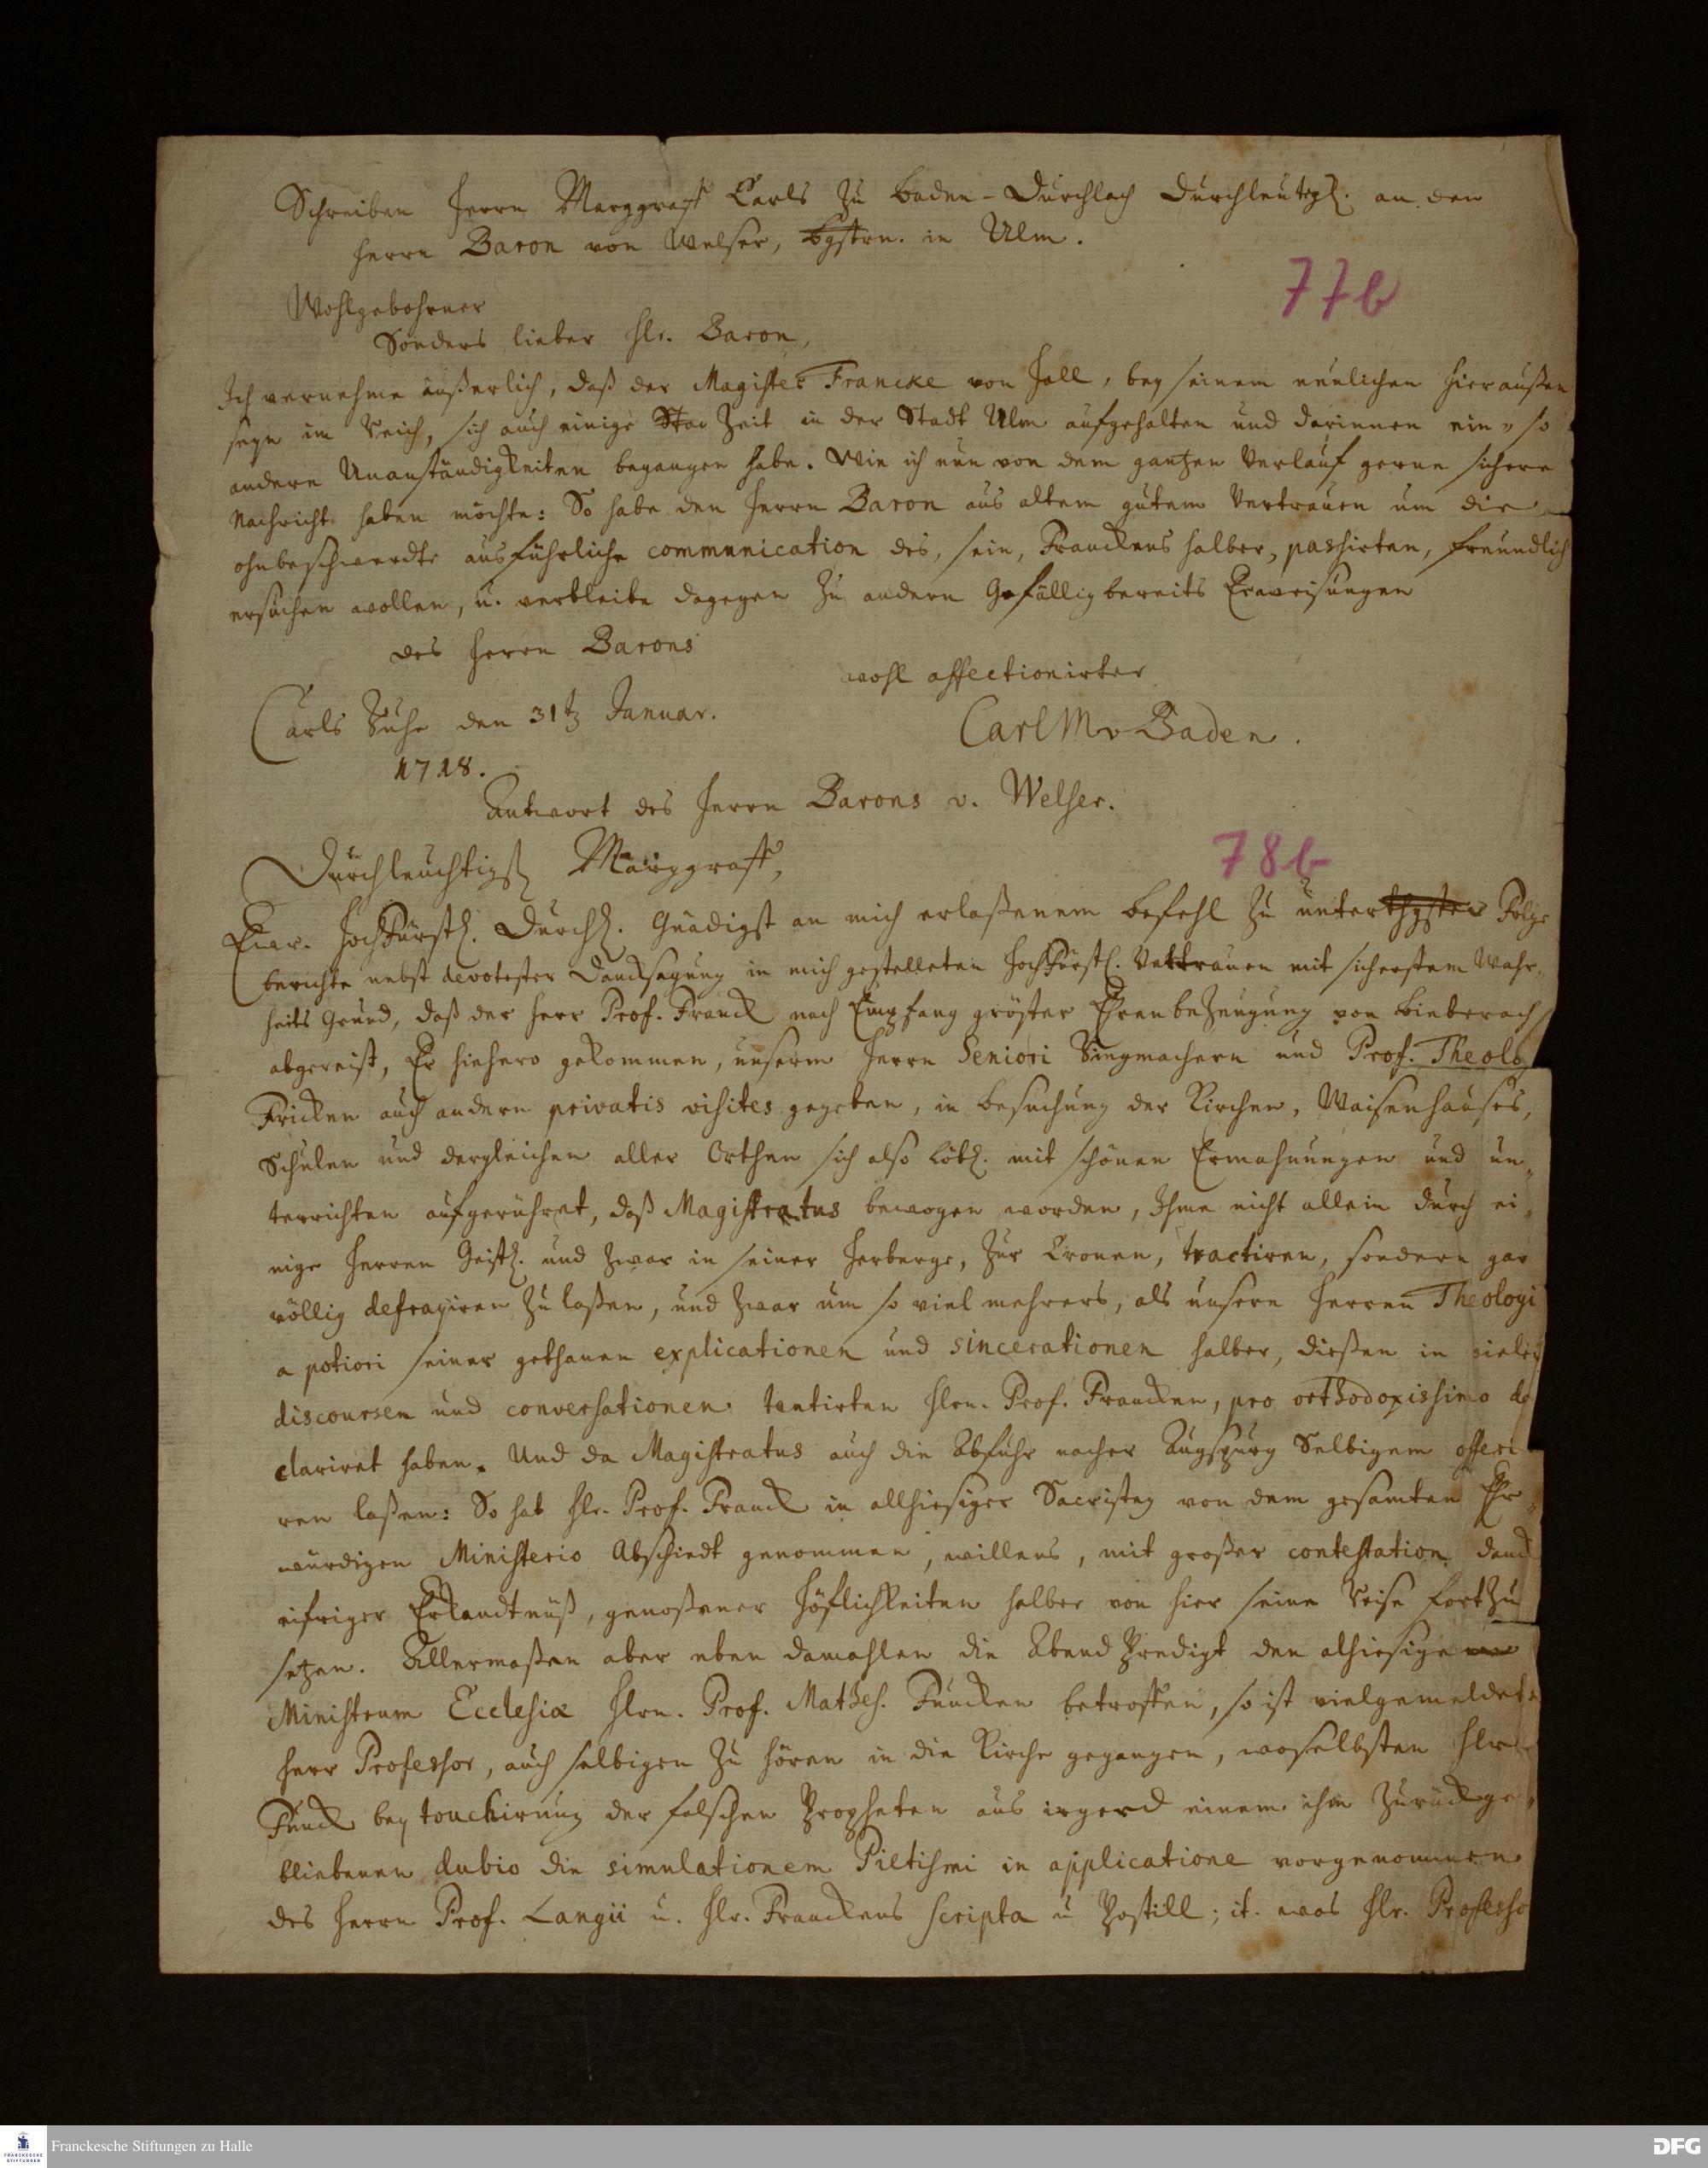 Schreiben Herrn Marggraff Carls zu Baden-Durchlach Durchleuchtigl. an den
Herrn Baron von Welser, in Ulm.
77b
Wohlgebohrner
Sonders lieber Hr. Baron,
Ich vernehme äußerlich, daß der Magister Francke von Hall, bey seinem neulichen hieraußen
seyn im Reich, sich auch einige Zeit in der Stadt Ulm aufgehalten und darinnen ein- so
andere Unanständigkeiten begangen habe. Wie ich nun von dem gantzen Verlauf gerne sichere
Nachricht haben möchte: So habe den Herrn Baron aus altem gutem Vertrauen um die
ohnbeschwerdte ausführliche communication des, sein, Franckens halber, passirten, freundlich
ersuchen wollen, u. verbleibe dagegen zu andern Gefällig bereits Erweisungen
des Herrn Barons
wohl affectionirter
Carls Ruhe den 31t Januar.
Carl M v Baden.
1718.
Antwort des Herrn Barons v. Welser.
Durchleuchtigst Marggraff,
78b
Eur. Hochfürstl. Durchl. Gnädigst an mich erlaßenem Befehl zu Folge
berichte nebst devotester Dancksagung in mich gestelleten Hochfürstl. Vertrauen mit sicherstem Wahr-
heits Grund, daß der Herr Prof. Franck nach Empfang gröster Ehrenbezeugung von Bieberach
abgereist, Er hiehero gekommen, unserm Herrn Seniori und Prof. Theolog
Fricken auch andern privatis visites gegeben, in Besuchung der Kirchen, Waisenhauses,
Schulen und dergleichen aller Orthen sich also löbl. mit schönen Ermahnungen und un-
terrichten aufgeführet, daß Magistratus bewogen worden, Ihme nicht allein durch ei-
nige Herren Geistl. und zwar in seiner Herberge, zur Cronen, tractiren, sondern gar
völlig defrayiren zu laßen, und zwar um so viel mehrers, als unsere Herren Theologi
a potiori seiner gethanen explicationen und sincerationen halber, dießen in vielen
discoursen und conversationen tentirten Hrn. Prof. Francken, pro orthodoxissimo de
clariret haben. Und da Magistratus auch die Abfuhr nacher Augspurg Selbigem offeri
ren laßen: So hat Hr. Prof. Franck in allhiesiger Sacristey von dem gesamten Ehr-
würdigen Ministerio Abschiedt genommen, willens, mit großer contestation danck
eifriger Erkandtnüß, genoßener Höflichkeiten halber von hier seine Reise fortzu
setzen. Allermaßen aber eben damahlen die Abend Predigt den alhiesigen
Ministrum Ecclesiæ Hrn. Prof. Mathes. Funcken betroffen, so ist vielgemeldete
Herr Professor, auch selbigen zu hören in die Kirche gegangen, woselbsten Hr.
Funck bey touchirung der falschen Propheten aus irgend einem ihm zurückge-
bliebenen dubio die simulationem Pietismi in applicatione vorgenommen
des Herrn Prof. Langii u. Hr. Franckens scripta u Postill; it. was Hr. Professo
Franckesche Stiftungen zu Halle
DFG